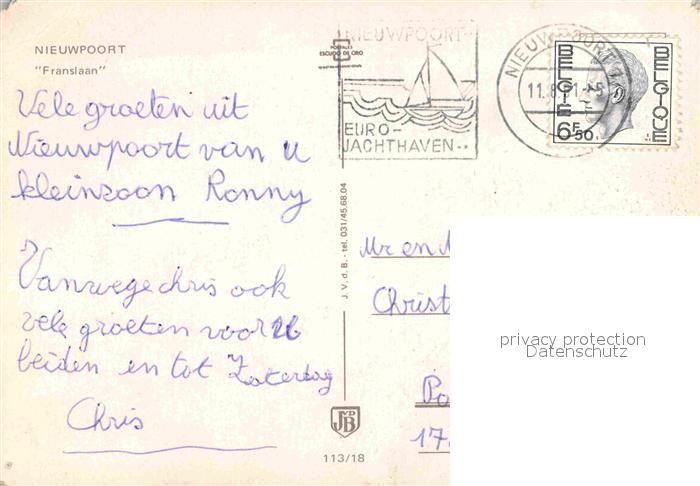 NIEUWPOORT
"Franslaan"
Vele groeten uit
Nieuwpoort van u
kleinzoon Ronny
Vanwege chris ook
vele groeten voor U
beiden en tot Zaterdag
Chris
POSTALES
ESCUDO DE ORO
J. V. d. B. - tel. 031/45.68.04
JVDB
113/18
NIEUWPOORT
EURO-
JACHTHAVEN
NIEUWPOORT 1
11.8
BELGIE
BELGIQUE
6F50
Mr en
Christ
Po
17
privacy protection
Datenschutz